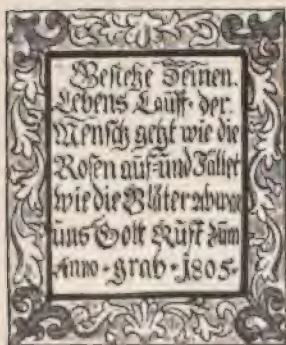 Besiehe Deinen.
Lebens Lauff. der
Mensch geht wie die
Rosen auf und Fället
wie die Bläter ab
uns Gott Rufft zum
Anno - grab - 1805 -